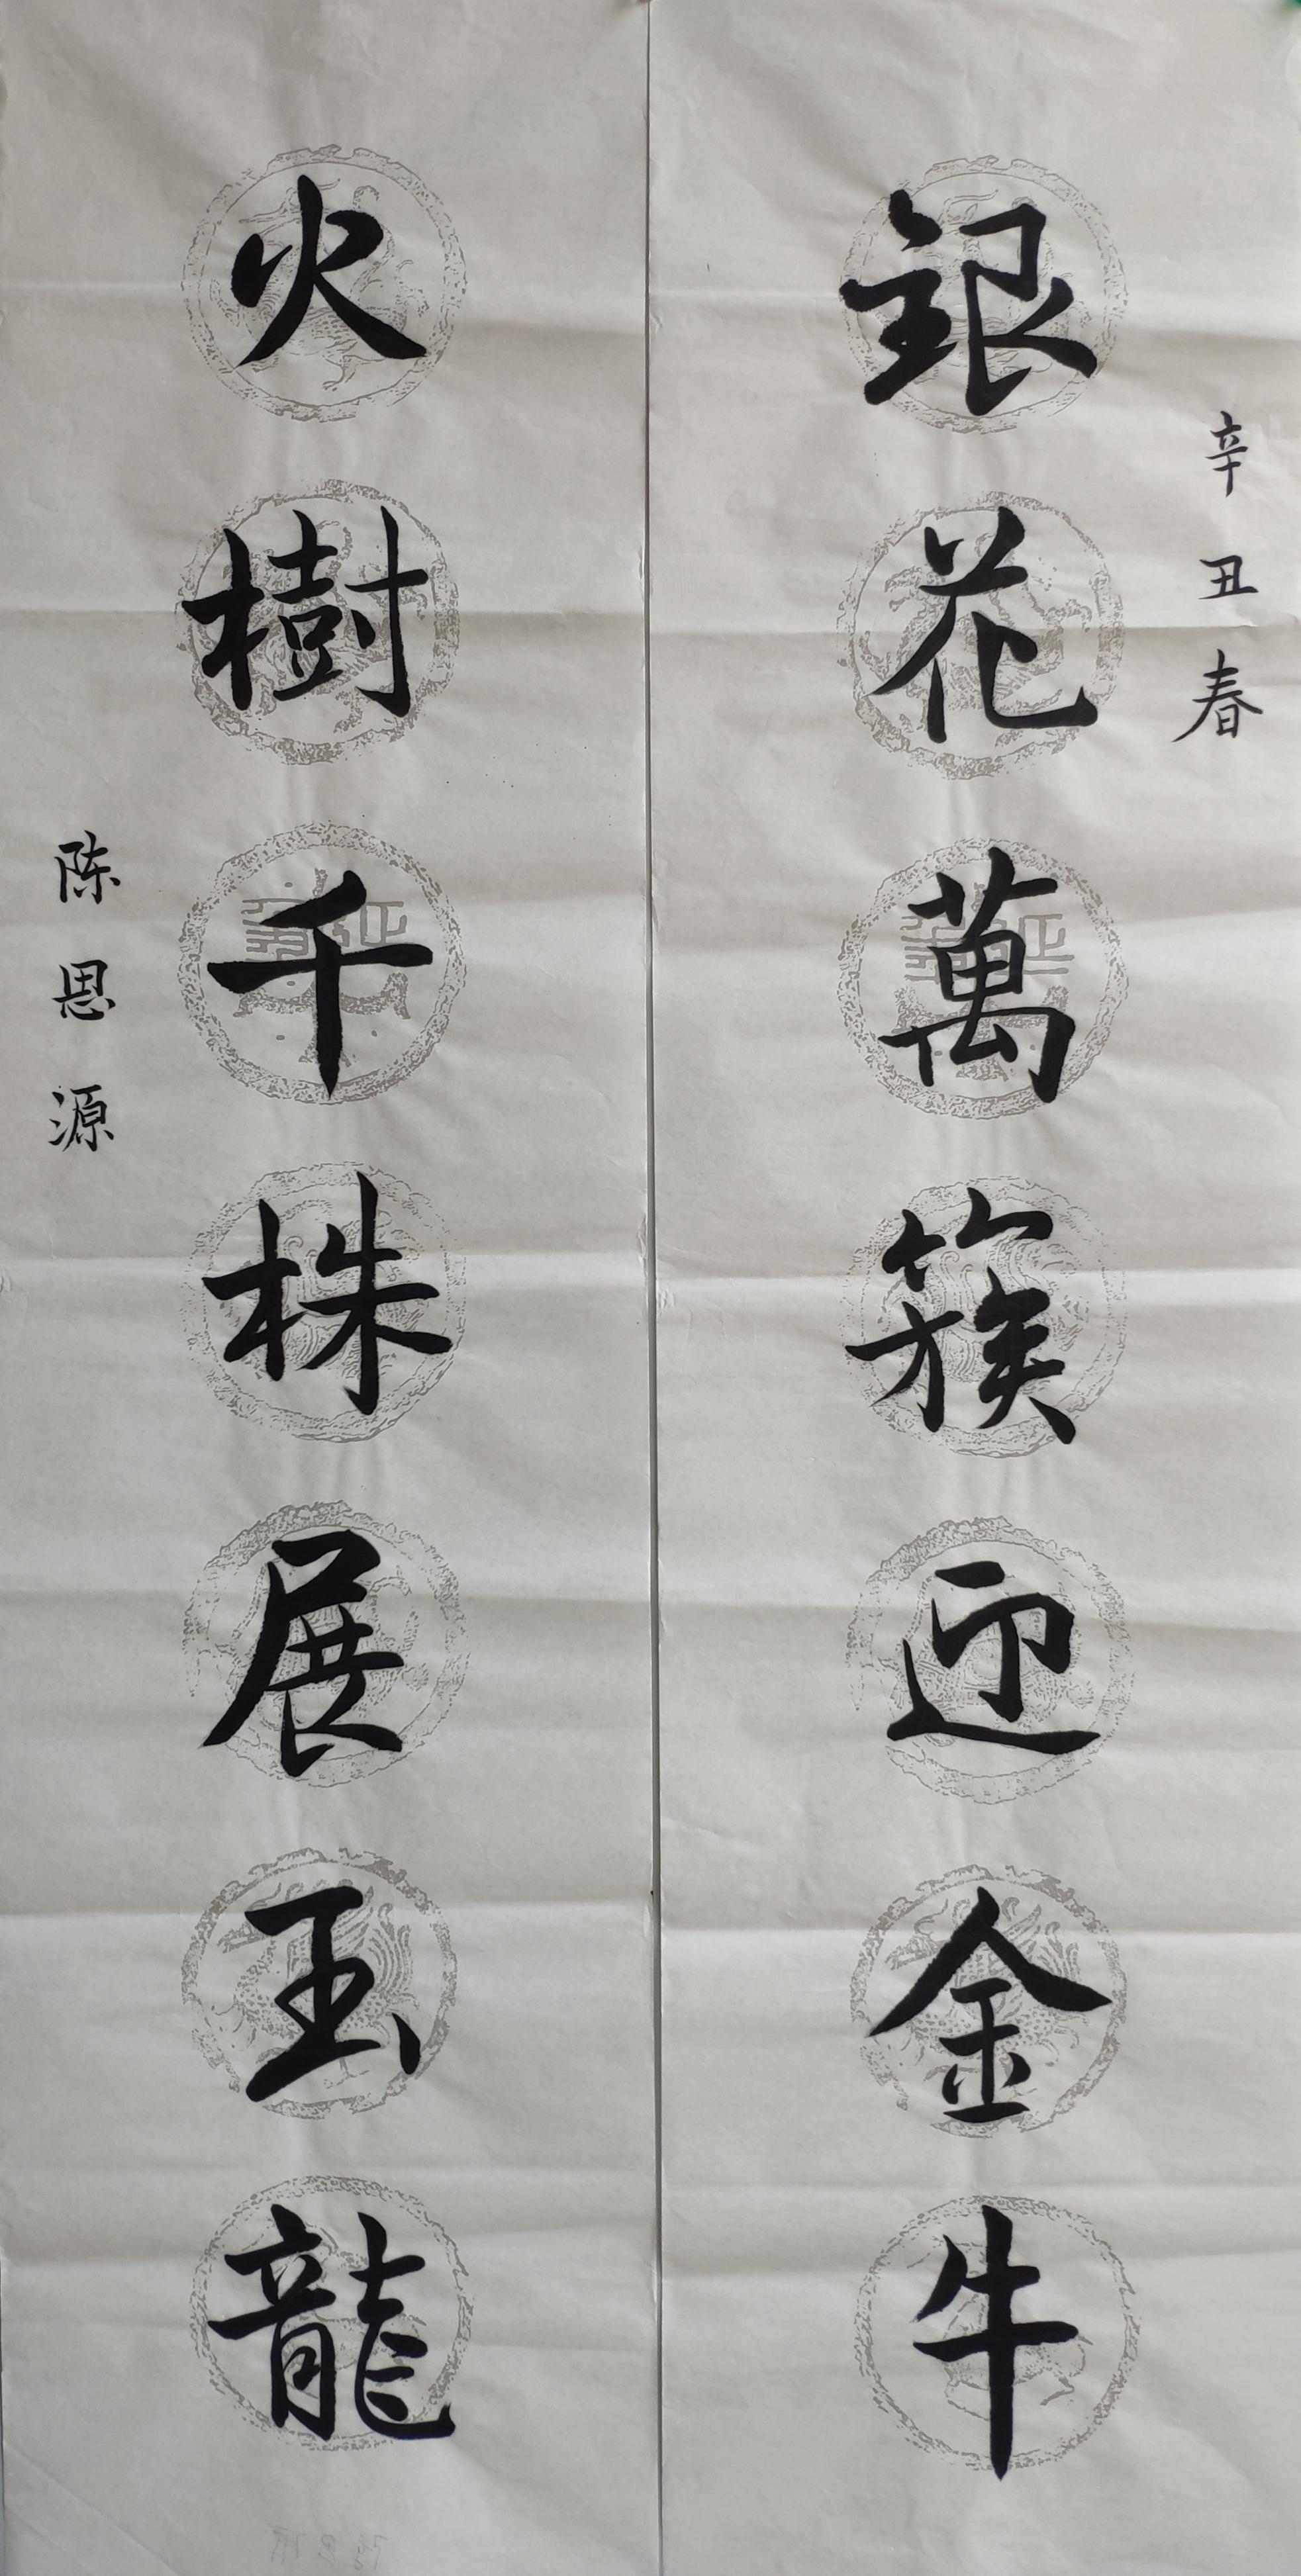 辛丑春
銀花萬簇迎金牛
火樹千株展玉龍
陈恩源